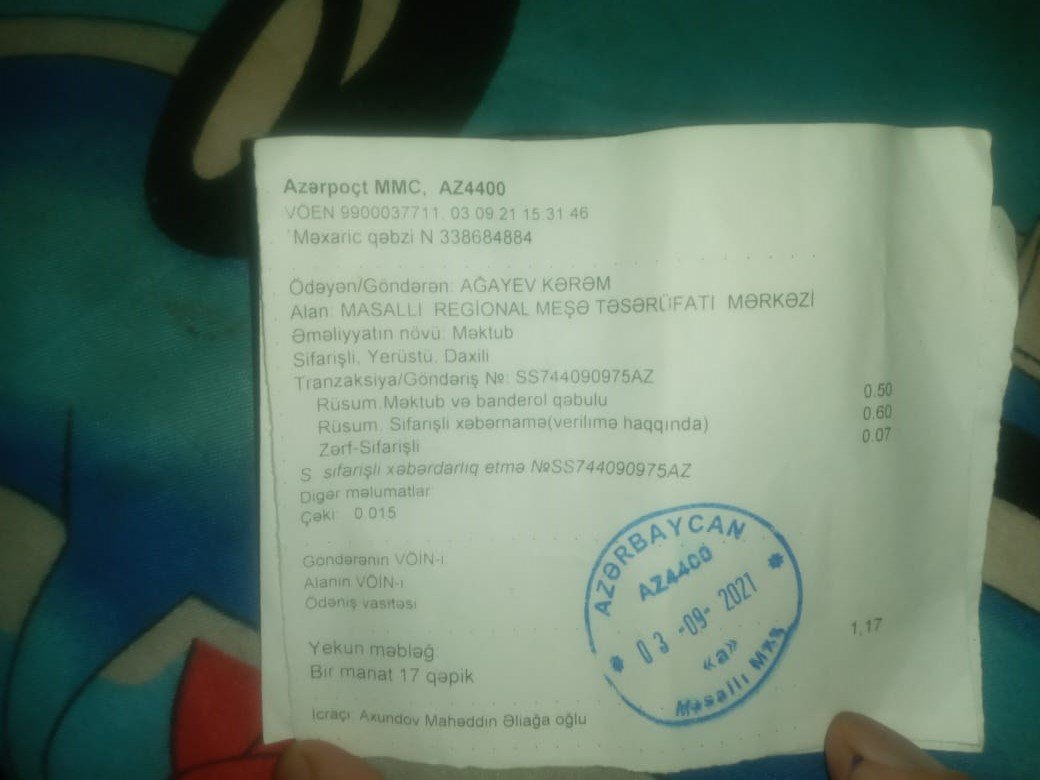 Azərpoçt MMC, AZ4400
VÖEN 9900037711, 03 09 21 15 31 46
Məxaric qəbzi N 338684884
Ödəyən/Göndərən: AĞAYEV KƏRƏM
Alan: MASALLI REGİONAL MEŞƏ TƏSƏRÜFATI MƏRKƏZİ
Əməliyyatın növü: Məktub
Sifarişli, Yerüstü, Daxili
Tranzaksiya/Göndəriş №: SS744090975AZ
Rüsum.Məktub və banderol qəbulu 0.50
Rüsum. Sifarişli xəbərnamə(verilmə haqqında) 0.60
Zərf-Sifarişli 0.07
S sifarişli xəbərdarlıq etmə №SS744090975AZ
Digər məlumatlar
Çəki: 0.015
Göndərənin VÖİN-i
Alanın VÖİN-i
Ödəniş vasitəsi
Yekun məbləğ 1,17
Bir manat 17 qəpik
İcraçı: Axundov Mahəddin Əliağa oğlu
AZƏRBAYCAN
AZ4400
03-09-2021
«a»
Masallı MXŞ